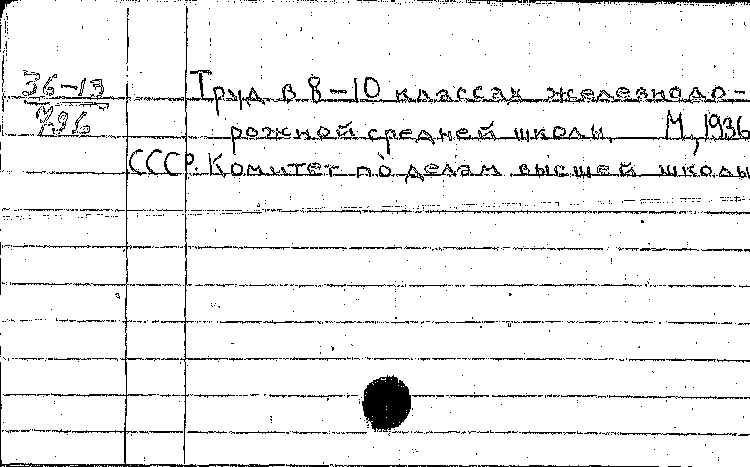 36-13
796
Труд в 8-10 классах железнодо-
рожной средней школы. М., 1936
СССР. Комитет по делам высшей школы